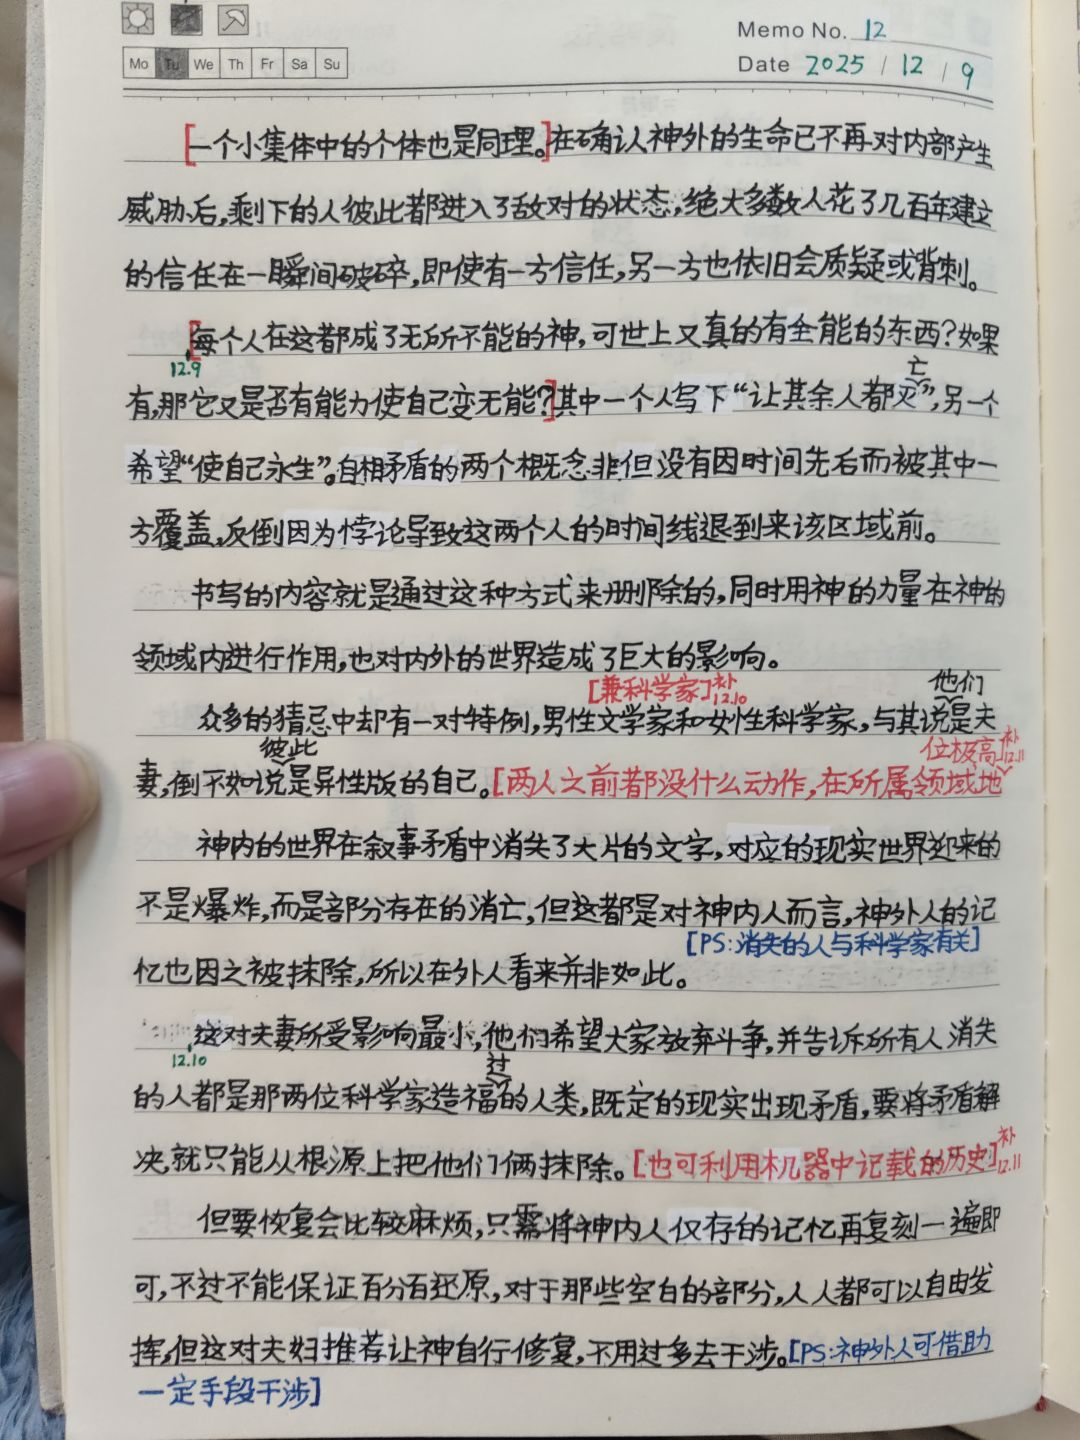 Memo No. 12
Mo Tu We Th Fr Sa Su
Date 2025 / 12 / 9
[一个小集体中的个体也是同理。]在确认神外的生命已不再对内部产生
威胁后,剩下的人彼此都进入了敌对的状态,绝大多数人花了几百年建立
的信任在一瞬间破碎,即使有一方信任,另一方也依旧会质疑或背刺。
[每个人在这都成了无所不能的神,可世上又真的有全能的东西?如果
12.9
亡
有,那它又是否有能力使自己变无能?]其中一个人写下“让其余人都灭”,另一个
希望“使自己永生”。自相矛盾的两个概念非但没有因时间先后而被其中一
方覆盖,反倒因为悖论导致这两个人的时间线退到来该区域前。
书写的内容就是通过这种方式来删除的,同时用神的力量在神的
领域内进行作用,也对内外的世界造成了巨大的影响。
[兼科学家]补12.10 他们
众多的猜忌中却有一对特例,男性文学家和女性科学家,与其说是夫
彼此 位极高]补12.11
妻,倒不如说是异性版的自己。[两人之前都没什么动作,在所属领域地
神内的世界在叙事矛盾中消失了大片的文字,对应的现实世界迎来的
不是爆炸,而是部分存在的消亡,但这都是对神内人而言,神外人的记
[PS:消失的人与科学家有关]
忆也因之被抹除,所以在外人看来并非如此。
这对夫妻所受影响最小,他们希望大家放弃斗争,并告诉所有人消失
12.10
过
的人都是那两位科学家造福的人类,既定的现实出现矛盾,要将矛盾解
决,就只能从根源上把他们俩抹除。[也可利用机器中记载的历史]补12.11
但要恢复会比较麻烦,只需将神内人仅存的记忆再复刻一遍即
可,不过不能保证百分百还原,对于那些空白的部分,人人都可以自由发
挥,但这对夫妇推荐让神自行修复,不用过多去干涉。[PS:神外人可借助
一定手段干涉]